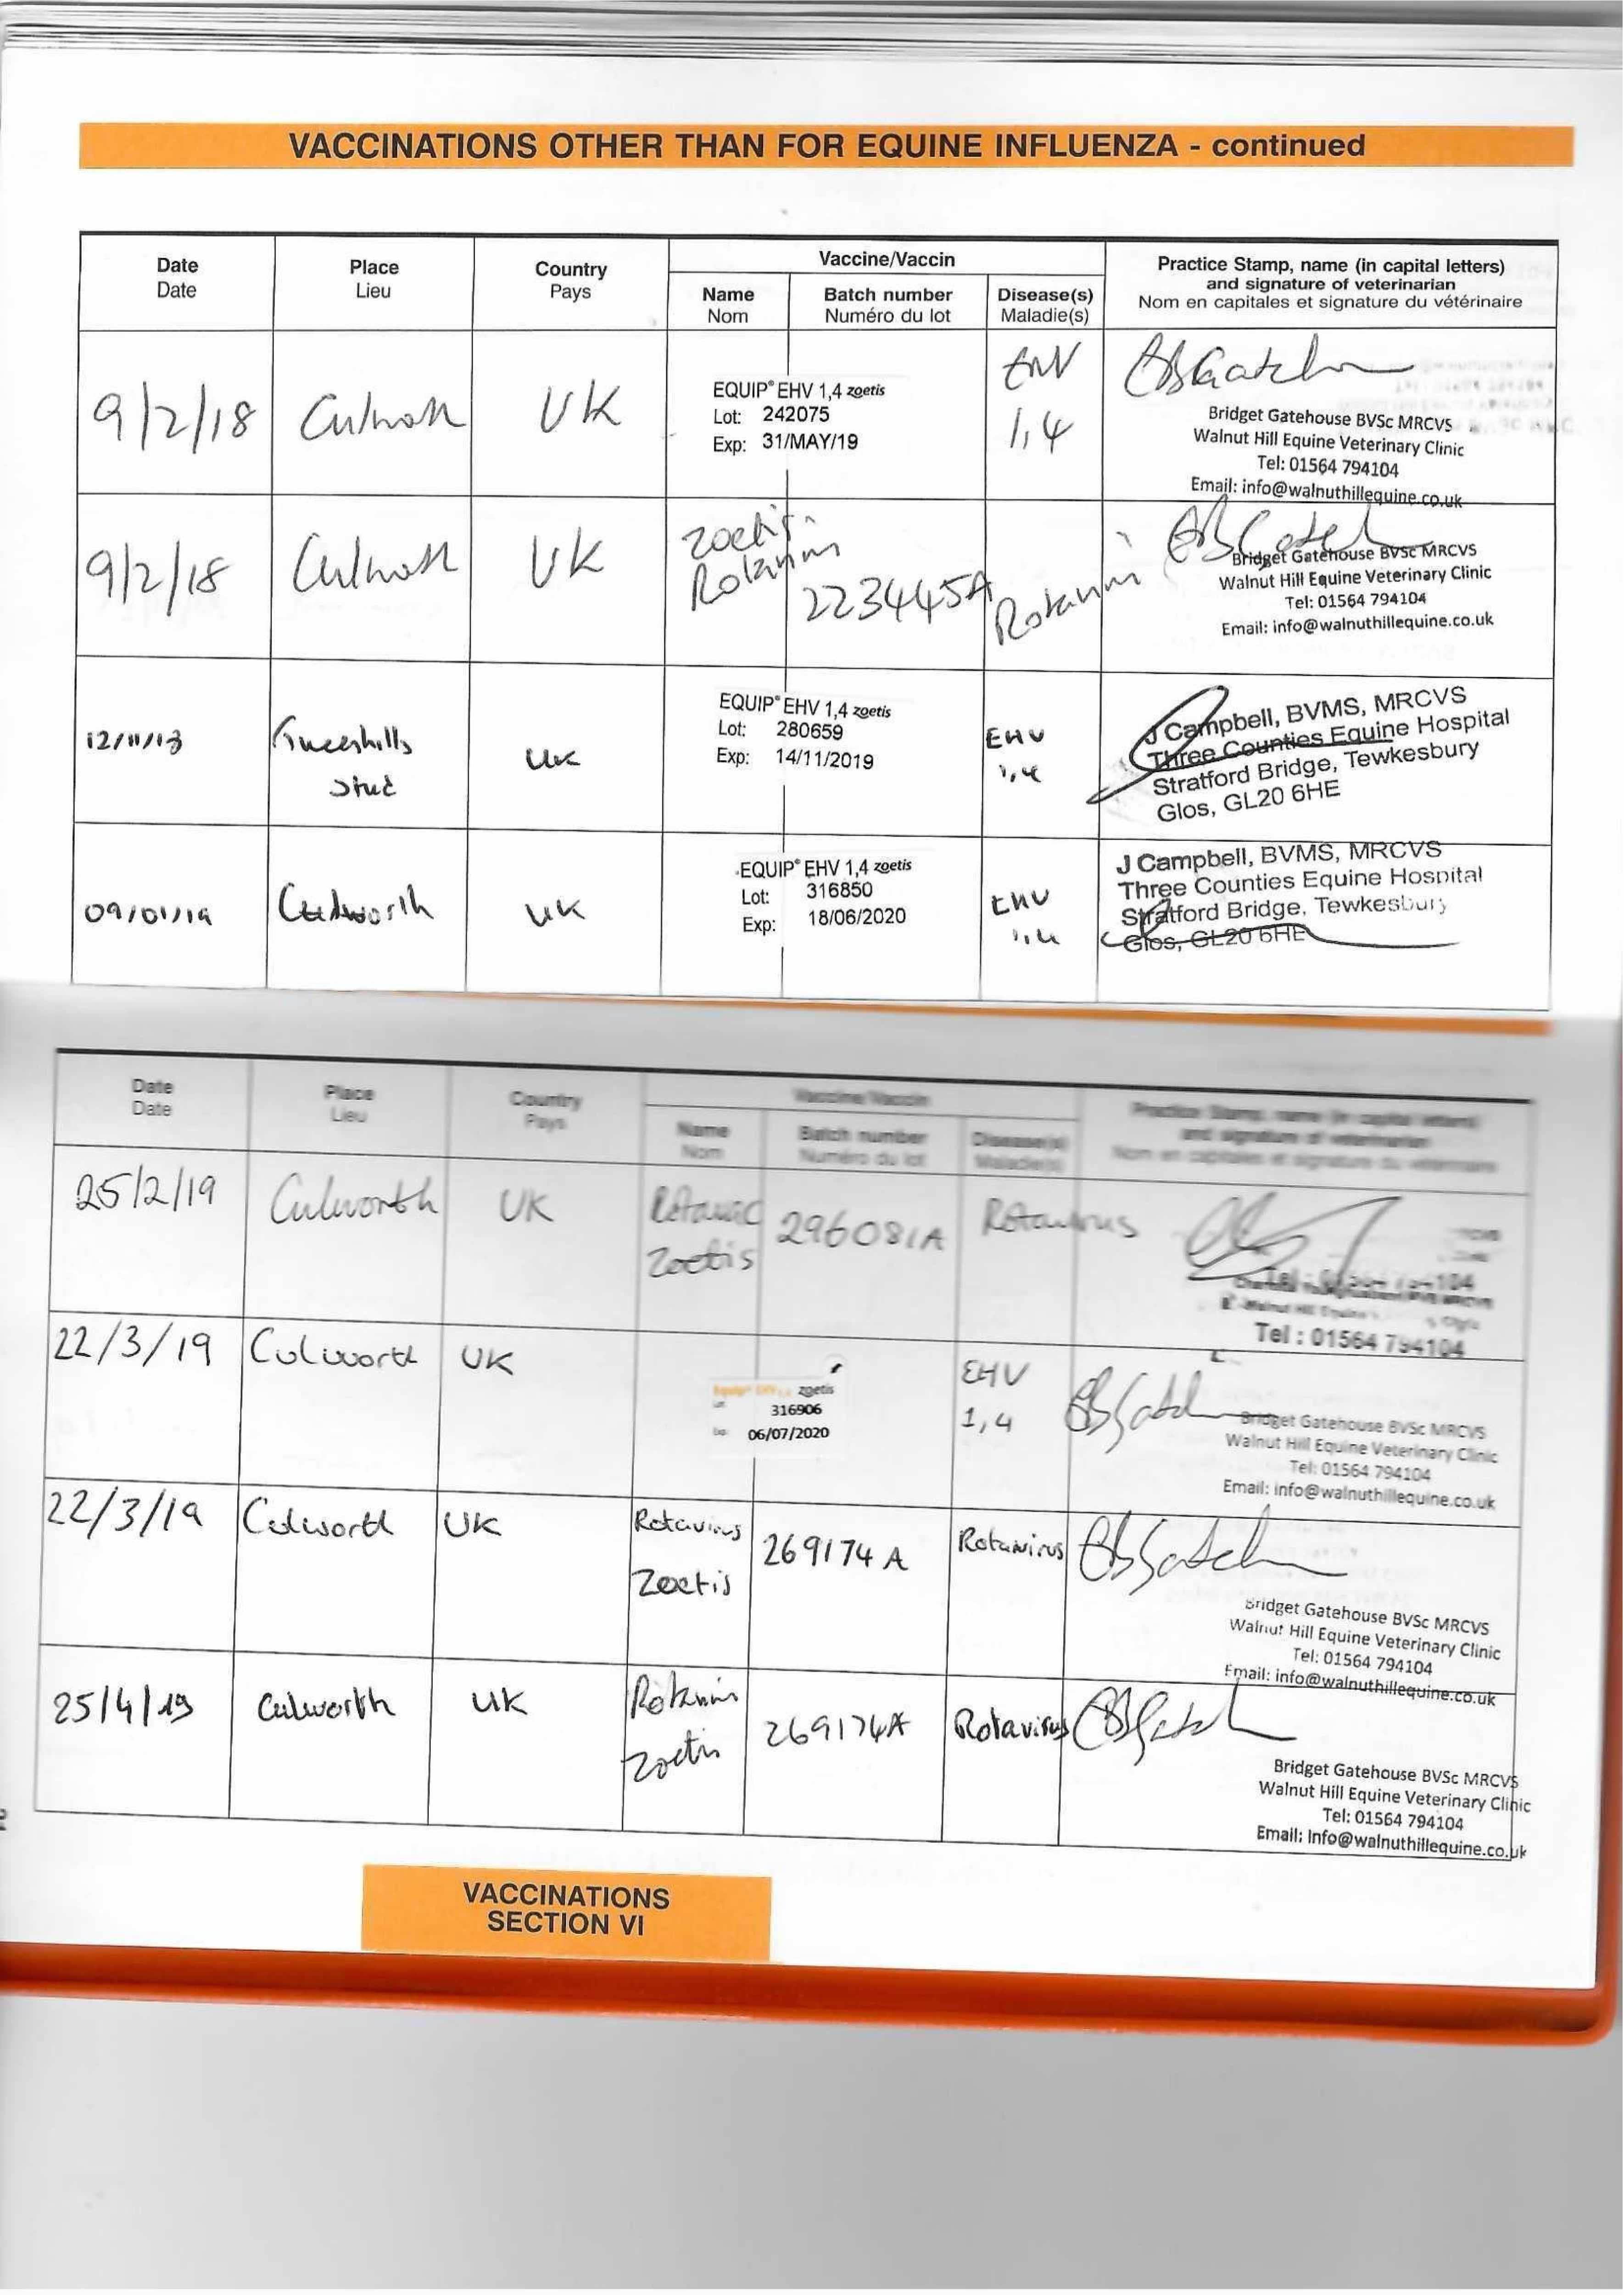 VACCINATIONS OTHER THAN FOR EQUINE INFLUENZA - continued
Date
Date
Place
Lieu
Country
Pays
Vaccine/Vaccin
Name
Nom
Batch number
Numéro du lot
Disease(s)
Maladie(s)
Practice Stamp, name (in capital letters)
and signature of veterinarian
Nom en capitales et signature du vétérinaire
9/2/18
UK
EQUIP® EHV 1,4 zoetis
Lot: 242075
Exp: 31/MAY/19
EHV
1,4
Bridget Gatehouse BVSc MRCVS
Walnut Hill Equine Veterinary Clinic
Tel: 01564 794104
Email: info@walnuthillequine.co.uk
9/2/18
UK
Zoetis
2234454A
Bridget Gatehouse BVSc MRCVS
Walnut Hill Equine Veterinary Clinic
Tel: 01564 794104
Email: info@walnuthillequine.co.uk
Stud
UK
EQUIP® EHV 1,4 zoetis
Lot: 280659
Exp: 14/11/2019
EHV
1,4
J Campbell, BVMS, MRCVS
Three Counties Equine Hospital
Stratford Bridge, Tewkesbury
Glos, GL20 6HE
09/01/19
Culworth
UK
EQUIP® EHV 1,4 zoetis
Lot: 316850
Exp: 18/06/2020
EHV
1,4
J Campbell, BVMS, MRCVS
Three Counties Equine Hospital
Stratford Bridge, Tewkesbury
Glos, GL20 6HE
Date
Date
Place
Lieu
Country
Pays
Vaccine/Vaccin
Name
Nom
Batch number
Numéro du lot
Disease(s)
Maladie(s)
Practice Stamp, name (in capital letters)
and signature of veterinarian
Nom en capitales et signature du vétérinaire
25/2/19
Culworth
UK
Rotavac
Zoetis
296081A
Rotavirus
Tel : 01564 794104
22/3/19
Culworth
UK
zoetis
316906
06/07/2020
EHV
1,4
Bridget Gatehouse BVSc MRCVS
Walnut Hill Equine Veterinary Clinic
Tel: 01564 794104
Email: info@walnuthillequine.co.uk
22/3/19
Culworth
UK
Rotavirus
Zoetis
269174A
Rotavirus
Bridget Gatehouse BVSc MRCVS
Walnut Hill Equine Veterinary Clinic
Tel: 01564 794104
Email: info@walnuthillequine.co.uk
25/4/19
Culworth
UK
Zoetis
269174A
Rotavirus
Bridget Gatehouse BVSc MRCVS
Walnut Hill Equine Veterinary Clinic
Tel: 01564 794104
Email: Info@walnuthillequine.co.uk
VACCINATIONS
SECTION VI